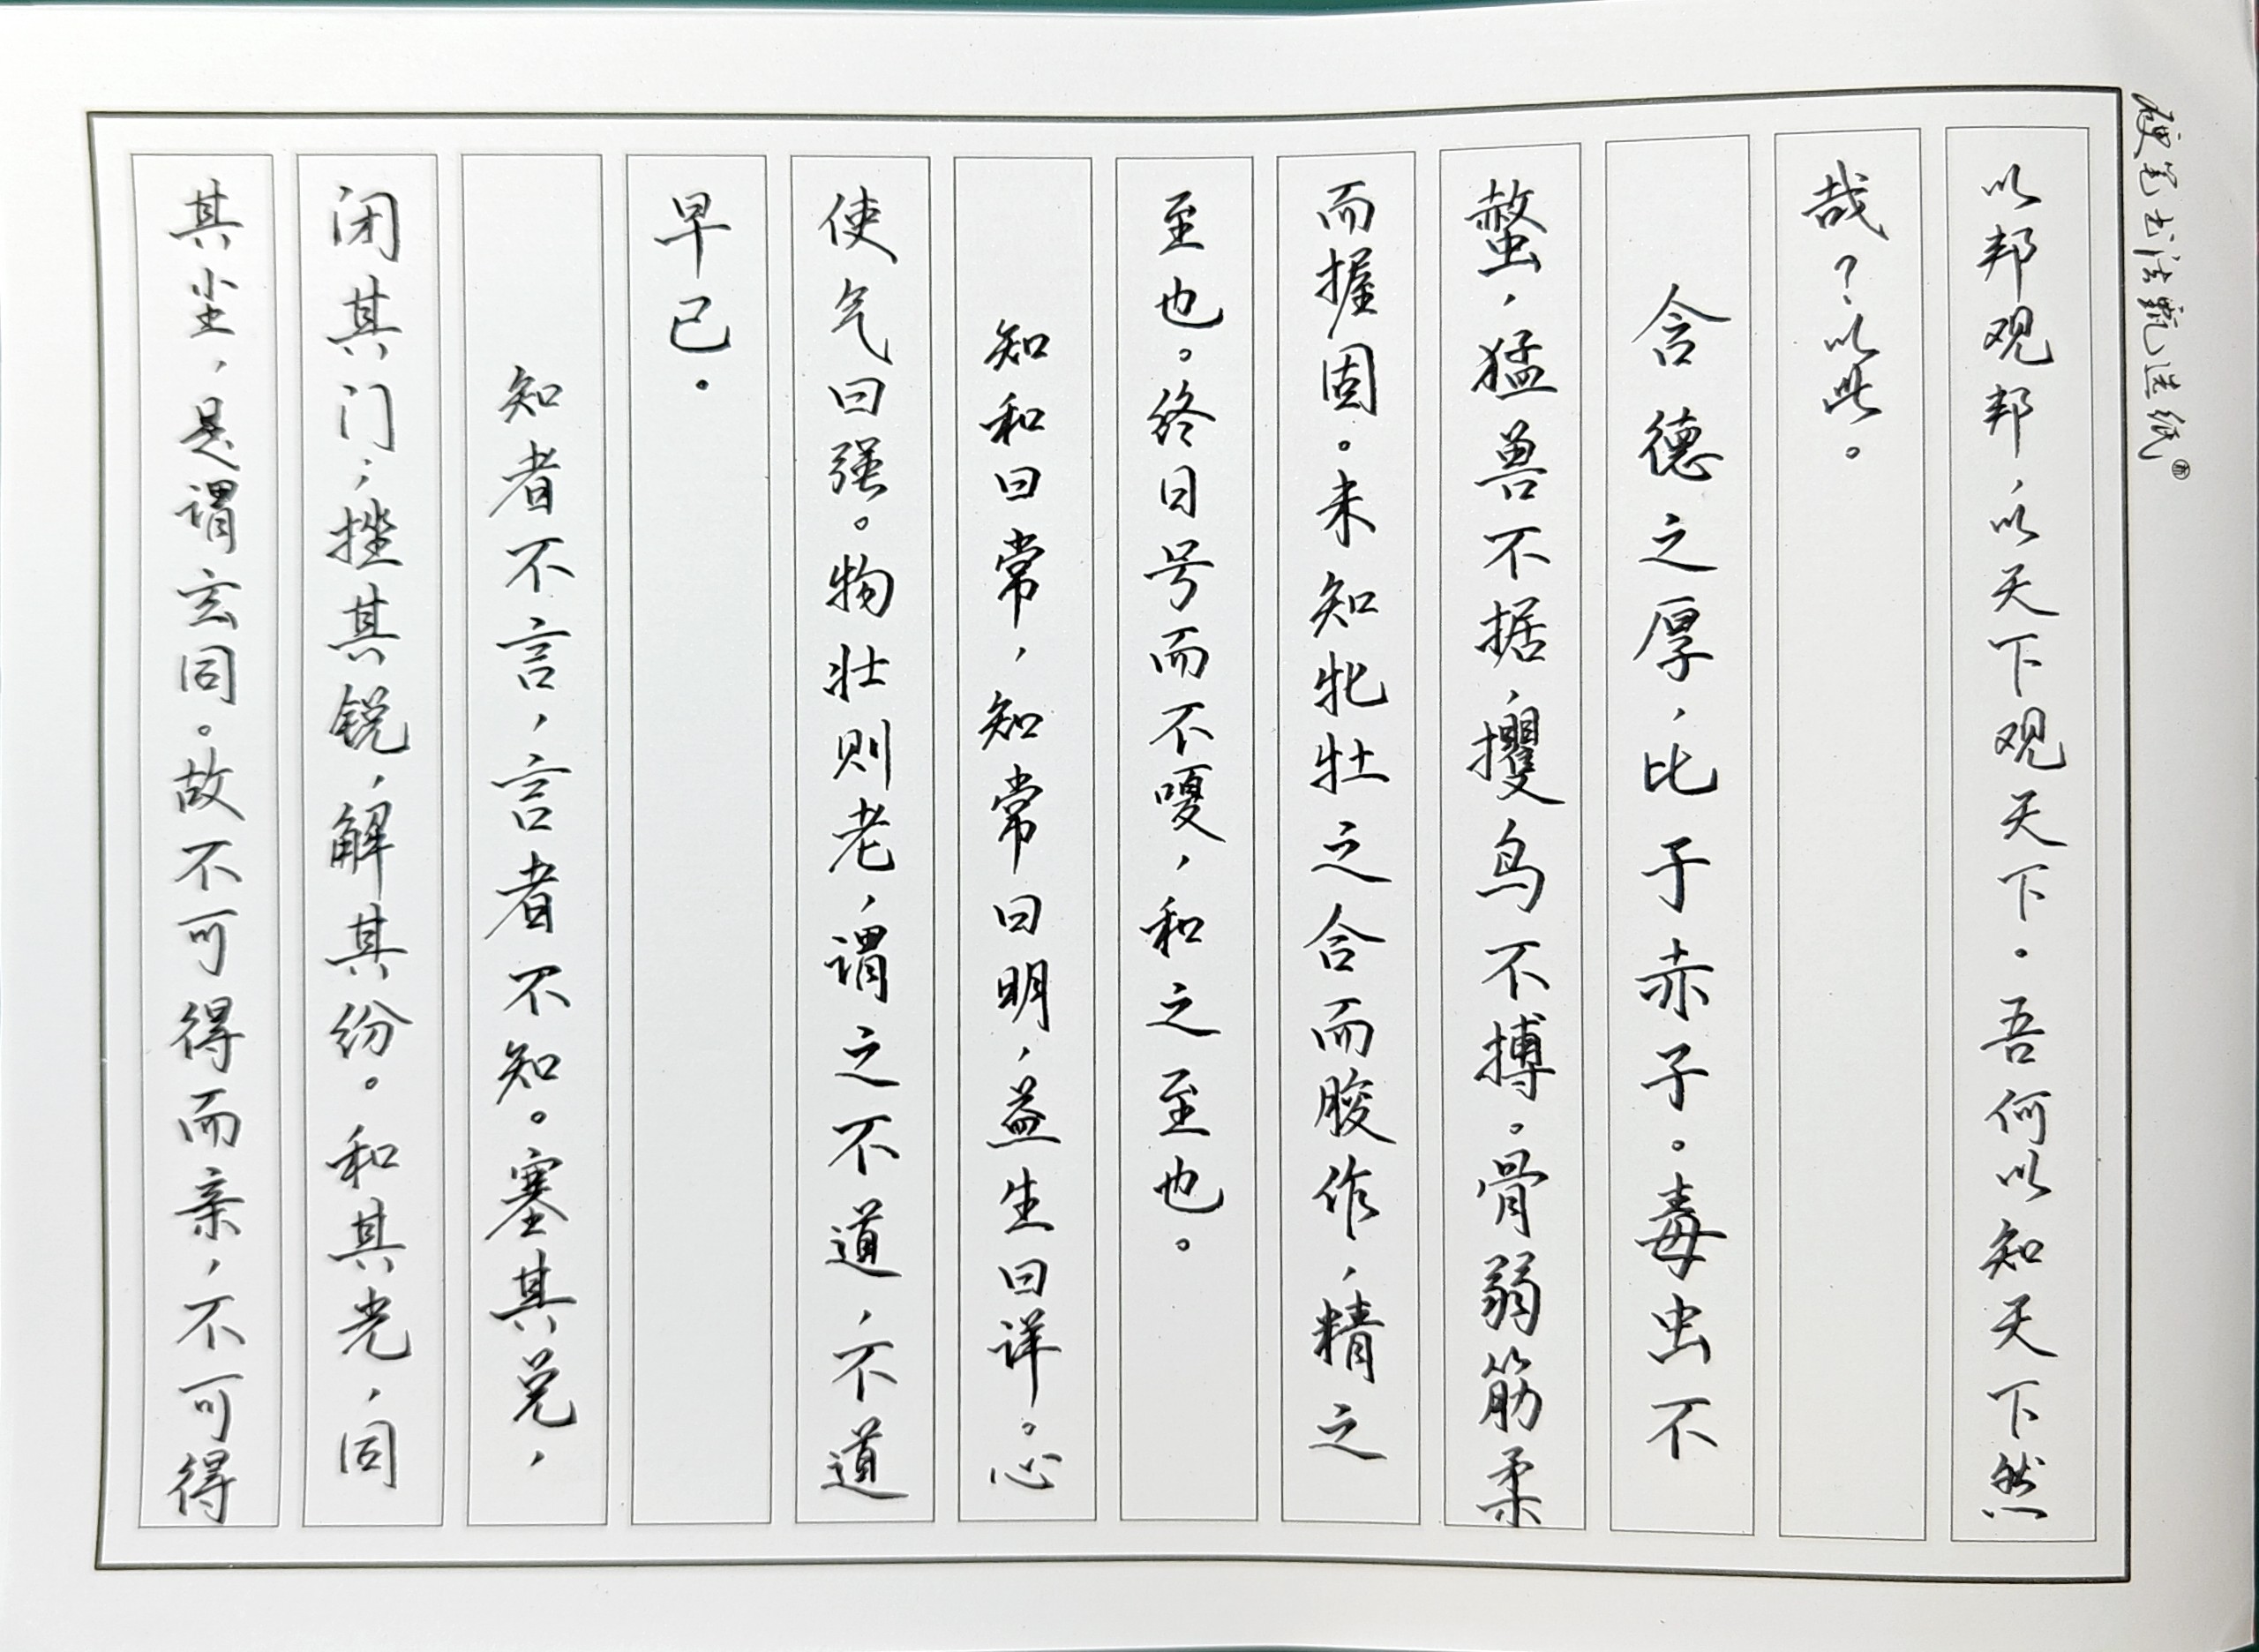 硬笔书法甄选纸
以邦观邦，以天下观天下。吾何以知天下然
哉？以此。
含德之厚，比于赤子。毒虫不
螫，猛兽不据，攫鸟不搏。骨弱筋柔
而握固。未知牝牡之合而朘作，精之
至也。终日号而不嗄，和之至也。
知和曰常，知常曰明，益生曰详。心
使气曰强。物壮则老，谓之不道，不道
早已。
知者不言，言者不知。塞其兑，
闭其门；挫其锐，解其纷。和其光，同
其尘，是谓玄同。故不可得而亲，不可得